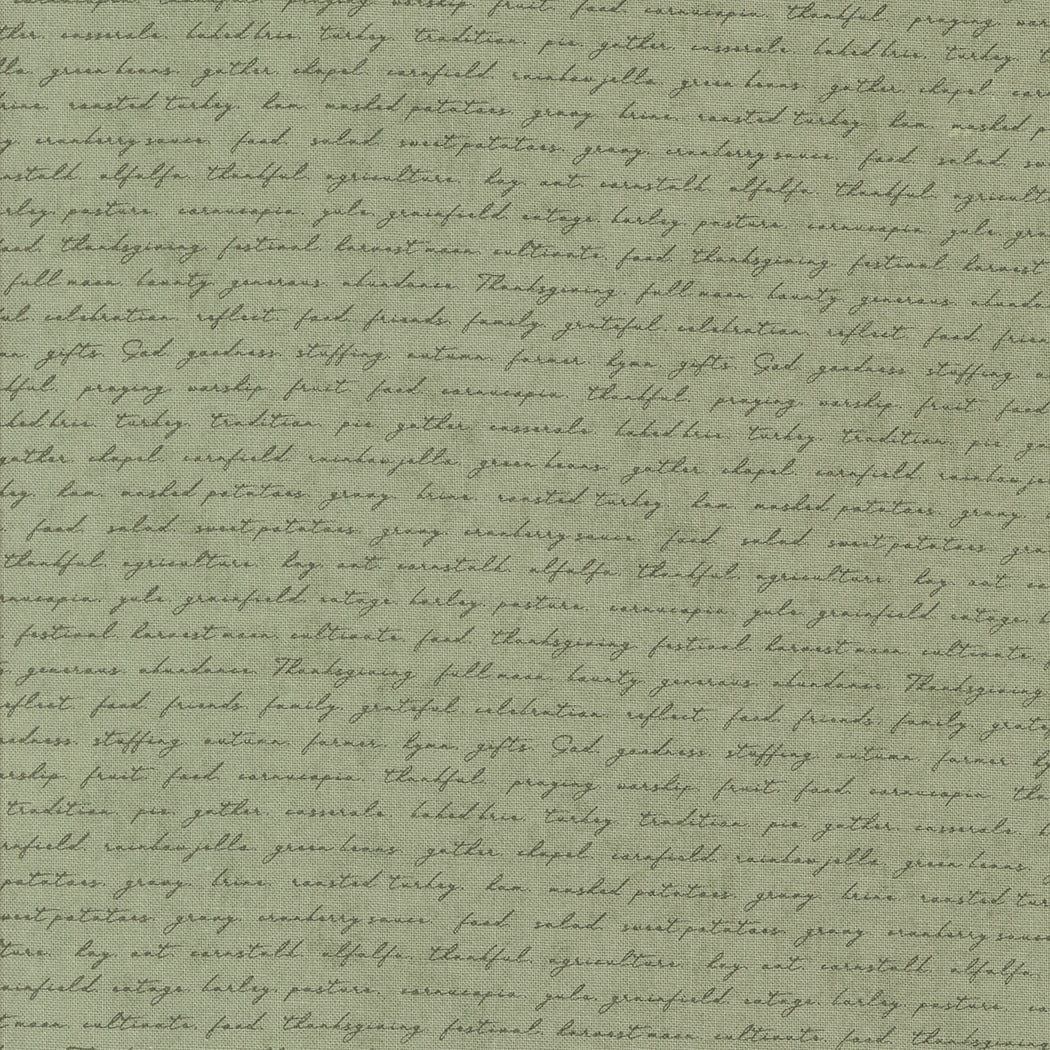 cornucopia. thankful. praying worship. fruit. food. cornucopia. thankful. praying.
casserole. baked brie. turkey. tradition. pie. gather. casserole. baked brie. turkey.
green beans. gather. chapel. cornfield. rainbow jello. green beans. gather. chapel.
brine. roasted turkey. ham. mashed potatoes. gravy. brine. roasted turkey. ham. mashed
cranberry sauce. food. salad. sweet potatoes. gravy. cranberry sauce. food. salad.
alfalfa. thankful. agriculture. hay. oat. cornstalk. alfalfa. thankful.
pasture. cornucopia. yule. grainfield. cotage. barley. pasture. cornucopia. yule.
food. thanksgiving. festival. harvest moon. cultivate. food. thanksgiving. festival. harvest
full moon. bounty. generous. abundance. Thanksgiving. full moon. bounty. generous.
celebration. reflect. food. friends. family. grateful. celebration. reflect. food.
gifts. God. goodness. stuffing. autumn. farmer. hymn. gifts. God. goodness. stuffing.
praying. worship. fruit. food. cornucopia. thankful. praying. worship. fruit. food
baked brie. turkey. tradition. pie. gather. casserole. baked brie. turkey. tradition. pie.
gather. chapel. cornfield. rainbow jello. green beans. gather. chapel. cornfield. rainbow
ham. mashed potatoes. gravy. brine. roasted turkey. ham. mashed potatoes. gravy.
food. salad. sweet potatoes. gravy. cranberry sauce. food. salad. sweet potatoes.
thankful. agriculture. hay. oat. cornstalk. alfalfa. thankful. agriculture. hay. oat.
yule. grainfield. cotage. barley. pasture. cornucopia. yule. grainfield. cotage.
festival. harvest moon. cultivate. food. thanksgiving. festival. harvest moon. cultivate.
generous. abundance. Thanksgiving. full moon. bounty. generous. abundance. Thanksgiving
reflect. food. friends. family. grateful. celebration. reflect. food. friends. family.
stuffing. autumn. farmer. hymn. gifts. God. goodness. stuffing. autumn. farmer.
fruit. food. cornucopia. thankful. praying. worship. fruit. food. cornucopia.
tradition. pie. gather. casserole. baked brie. turkey. tradition. pie. gather. casserole.
rainbow jello. green beans. gather. chapel. cornfield. rainbow jello. green beans.
potatoes. gravy. brine. roasted turkey. ham. mashed potatoes. gravy. brine. roasted
sweet potatoes. gravy. cranberry sauce. food. salad. sweet potatoes. gravy. cranberry sauce
hay. oat. cornstalk. alfalfa. thankful. agriculture. hay. oat. cornstalk. alfalfa.
cotage. barley. pasture. cornucopia. yule. grainfield. cotage. barley. pasture.
moon. cultivate. food. thanksgiving. festival. harvest moon. cultivate. food. thanksgiving